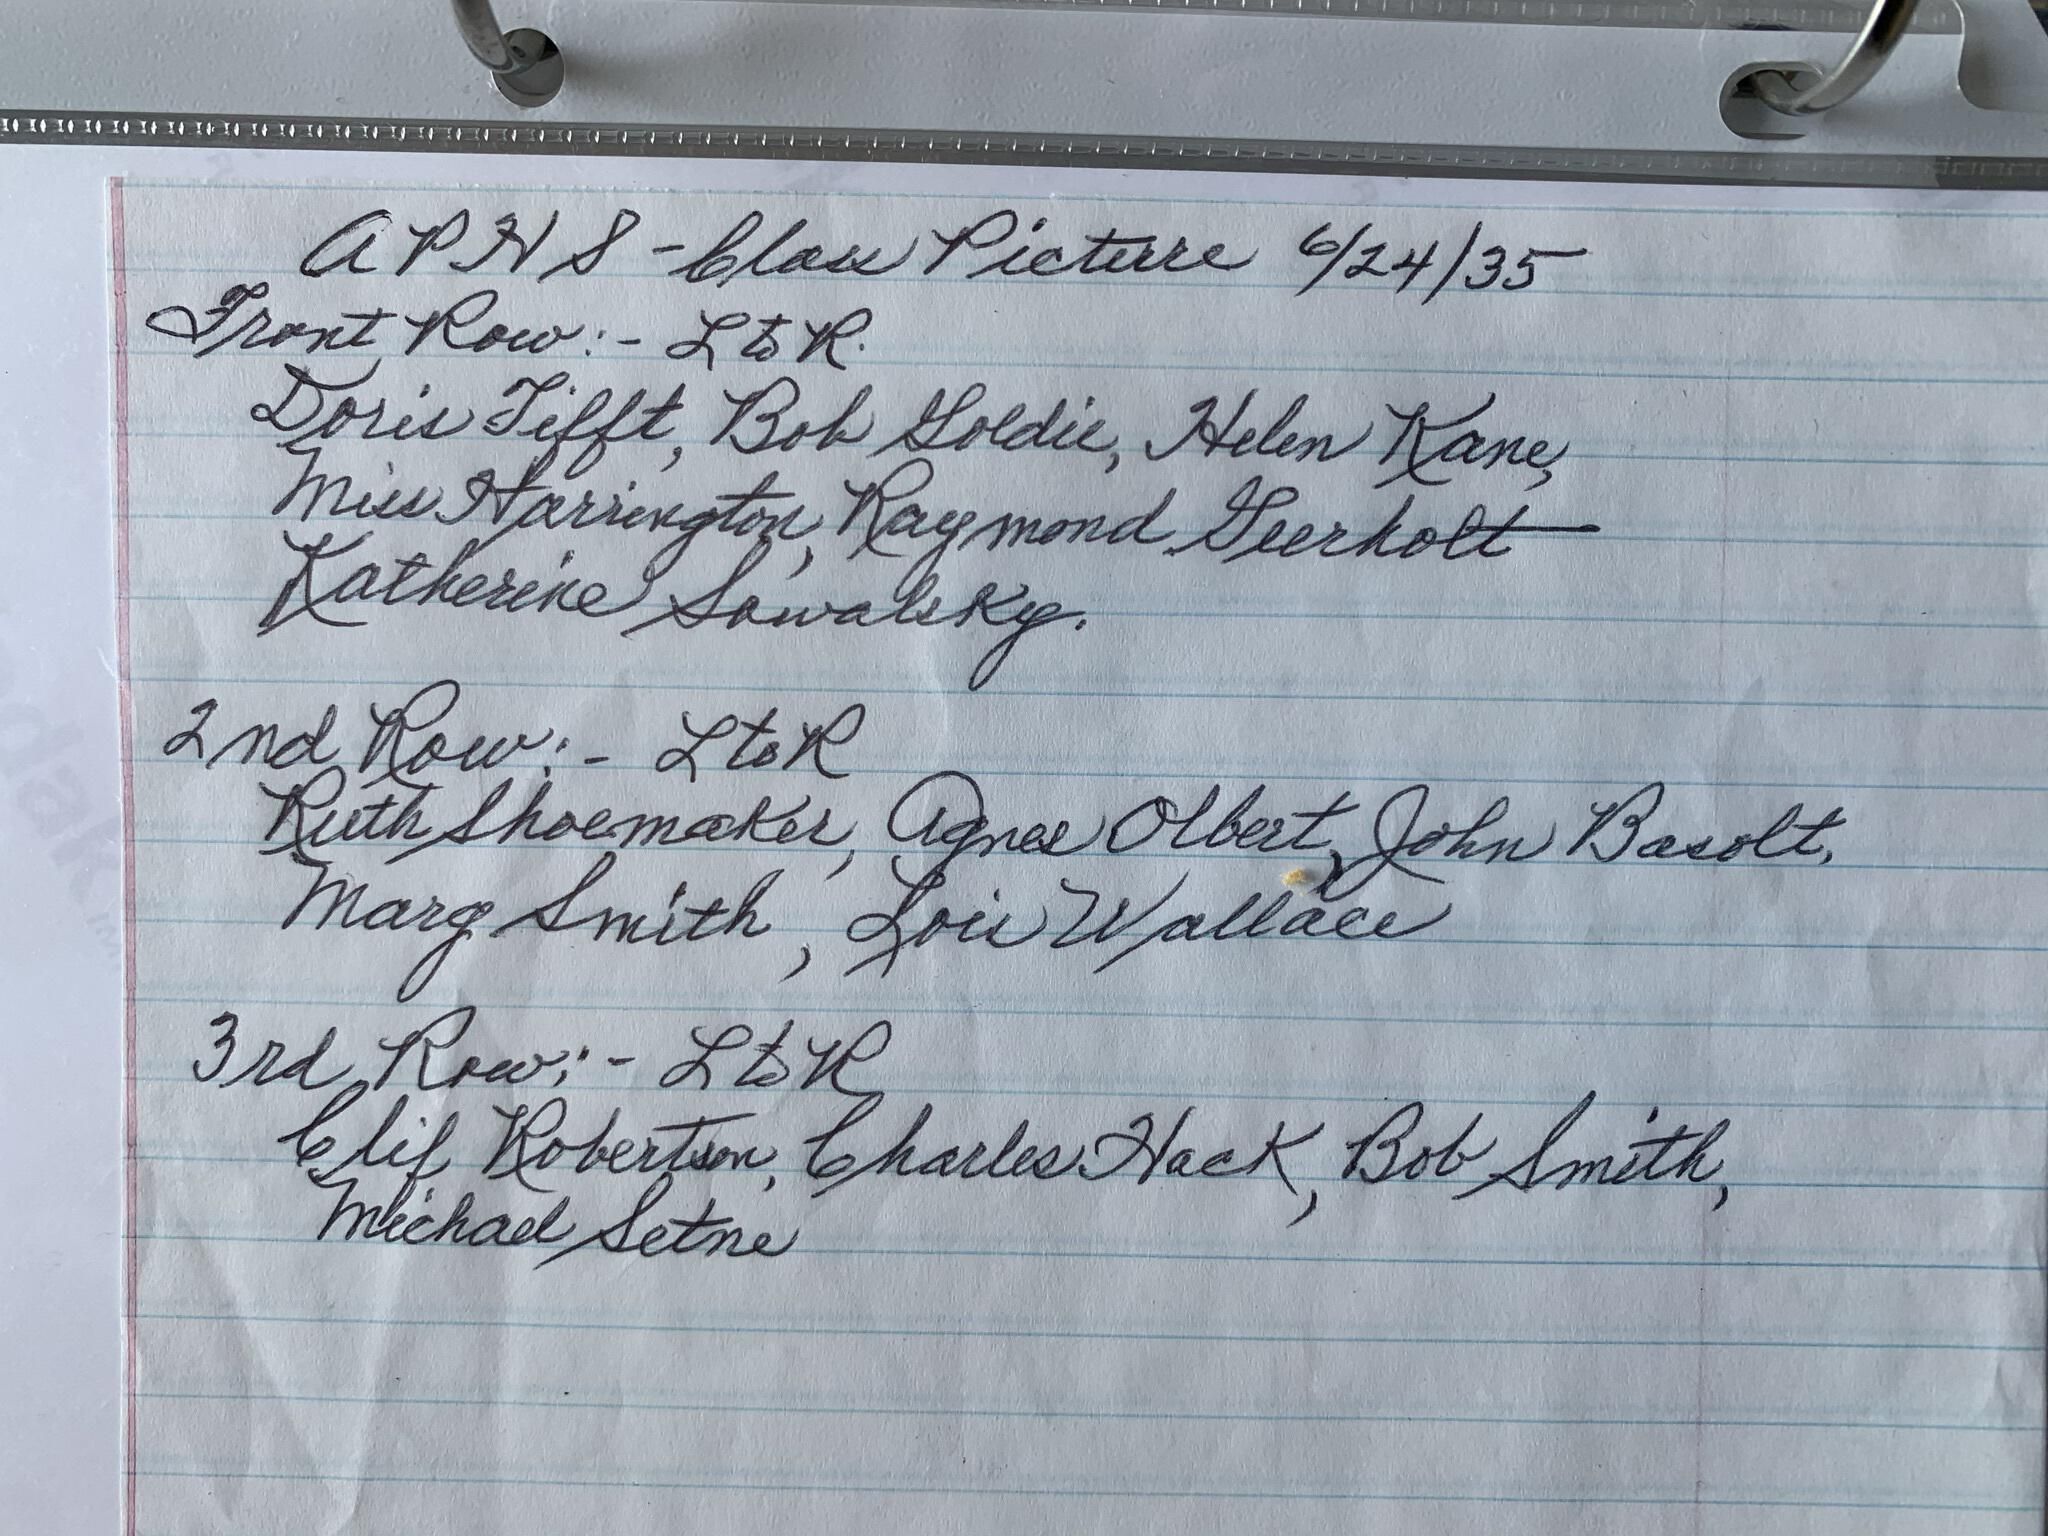 APHS - Class Picture 6/24/35
Front Row:- L to R.
Doris Tifft, Bob Goldie, Helen Kane,
Miss Harrington, Raymond Geerholt
Katherine Sowalsky.
2nd Row:- L to R
Ruth Shoemaker, Agnes Olbert, John Basolt,
Marg Smith, Lois Wallace
3rd Row:- L to R
Clif Robertson, Charles Hack, Bob Smith,
Michael Setne